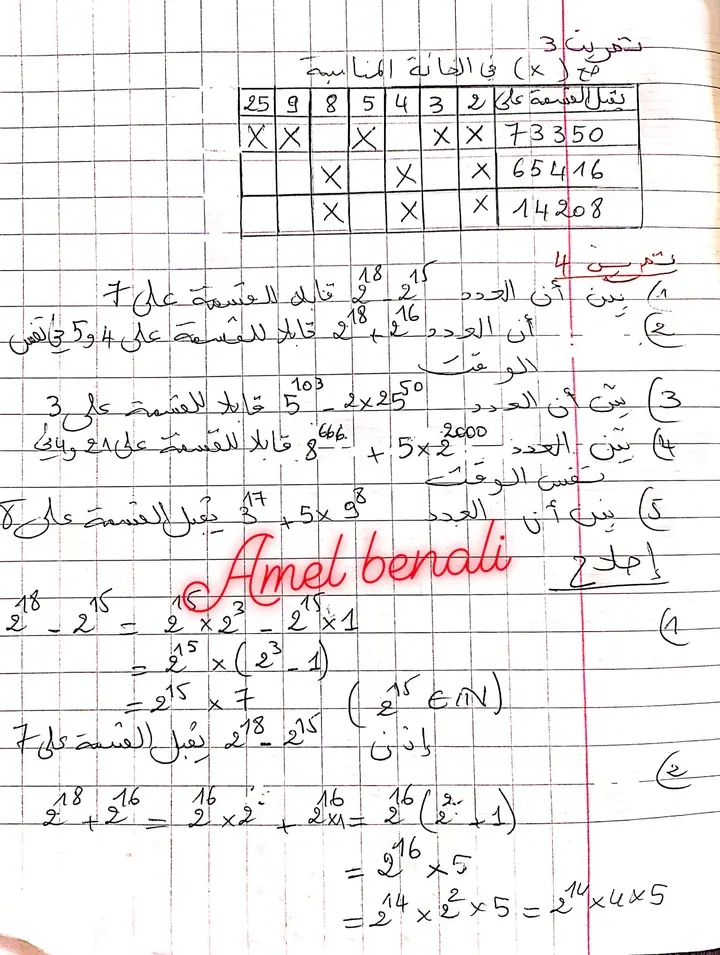 تمرين 3
ضع (x) في الخانة المناسبة
يقبل القسمة على | 2 | 3 | 4 | 5 | 8 | 9 | 25
73350 | X | X | | X | | X | X
65416 | X | | X | | X | |
14208 | X | | X | | X | |
تمرين 4
1) بين أن العدد 2^18 - 2^15 قابلا للقسمة على 7
2) أن العدد 2^18 + 2^16 قابلا للقسمة على 4 و 5 في نفس
الوقت
3) بين أن العدد 5^103 - 2×25^50 قابلا للقسمة على 3
4) بين العدد 8^666 + 5×2^2000 قابلا للقسمة على 21 و 4 في
نفس الوقت
5) بين أن العدد 3^17 + 5×9^8 يقبل القسمة على 8
Amel benali
إصلاح
1) 2^18 - 2^15 = 2^15 × 2^3 - 2^15 × 1
= 2^15 × (2^3 - 1)
= 2^15 × 7 (2^15 ∈ IN)
إذن 2^18 - 2^15 يقبل القسمة على 7
2)
2^18 + 2^16 = 2^16 × 2^2 + 2^16 ×1 = 2^16 (2^2 + 1)
= 2^16 × 5
= 2^14 × 2^2 × 5 = 2^14 × 4 × 5